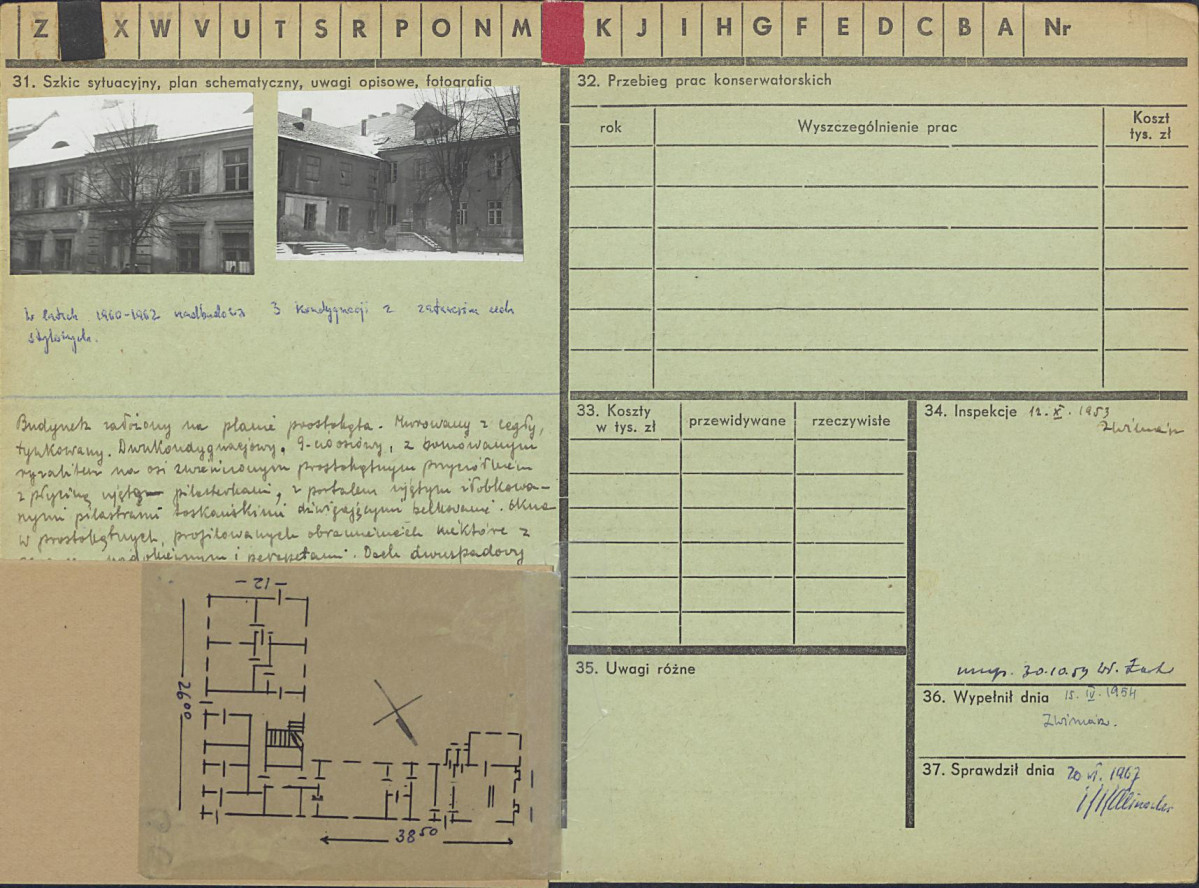 Z X W V U T S R P O N M K J I H G F E D C B A Nr
31. Szkic sytuacyjny, plan schematyczny, uwagi opisowe, fotografia
W latach 1960-1962 nadbudowa 3 kondygnacji z zatarciem cech
stylowych.
Budynek założony na planie prostokąta. Murowany z cegły,
tynkowany. Dwukondygnacjowy, 9-osiowy, z boniowanym
ryzalitem na osi zwieńczonym prostokątnym przyczółkiem
z płyciną ujętą pilasterkami, z portalem ujętym żłobkowa-
nymi pilastrami toskańskimi dźwigającymi belkowanie. Okna
w prostokątnych, profilowanych obramieniach niektóre z
i parapetami. Dach dwuspadowy
- 12 -
2600
38 50
32. Przebieg prac konserwatorskich
rok
Wyszczególnienie prac
Koszt
tys. zł
33. Koszty
w tys. zł
przewidywane
rzeczywiste
34. Inspekcje 12. X. 1953
30.10.59
35. Uwagi różne
36. Wypełnił dnia 15. IV. 1954
37. Sprawdził dnia 20 VI. 1967